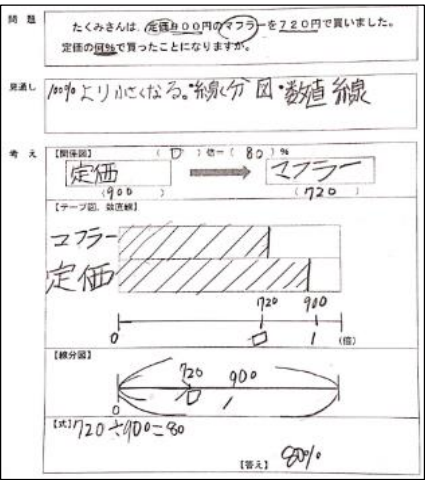 問題
たくみさんは、定価900円のマフラーを720円で買いました。
定価の何%で買ったことになりますか。
見通し
100%より小さくなる。・線分図・数値線
考え
【関係図】 (□)倍=(80)%
定価 マフラー
(900) (720)
【テープ図、数直線】
マフラー
定価
720 900
0 □ 1 (倍)
【線分図】
720 900
0 □ 1
【式】720÷900=80
【答え】80%